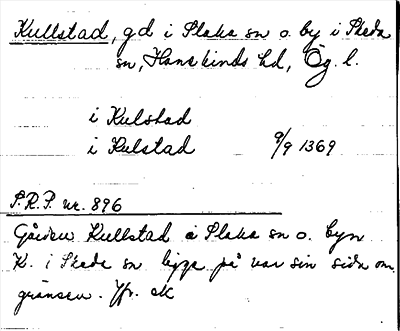 Kullstad, gd i Slaka sn o. by i Skeda
sn, Hanekinds hd, Ög. l.
i Kulstad
i Kulstad 9/9 1369
S.R.P. nr. 896
Gården Kullstad a Slaka sn o. byn
K. i Skeda sn ligga på var sin sida om
gränsen. Jfr. ck